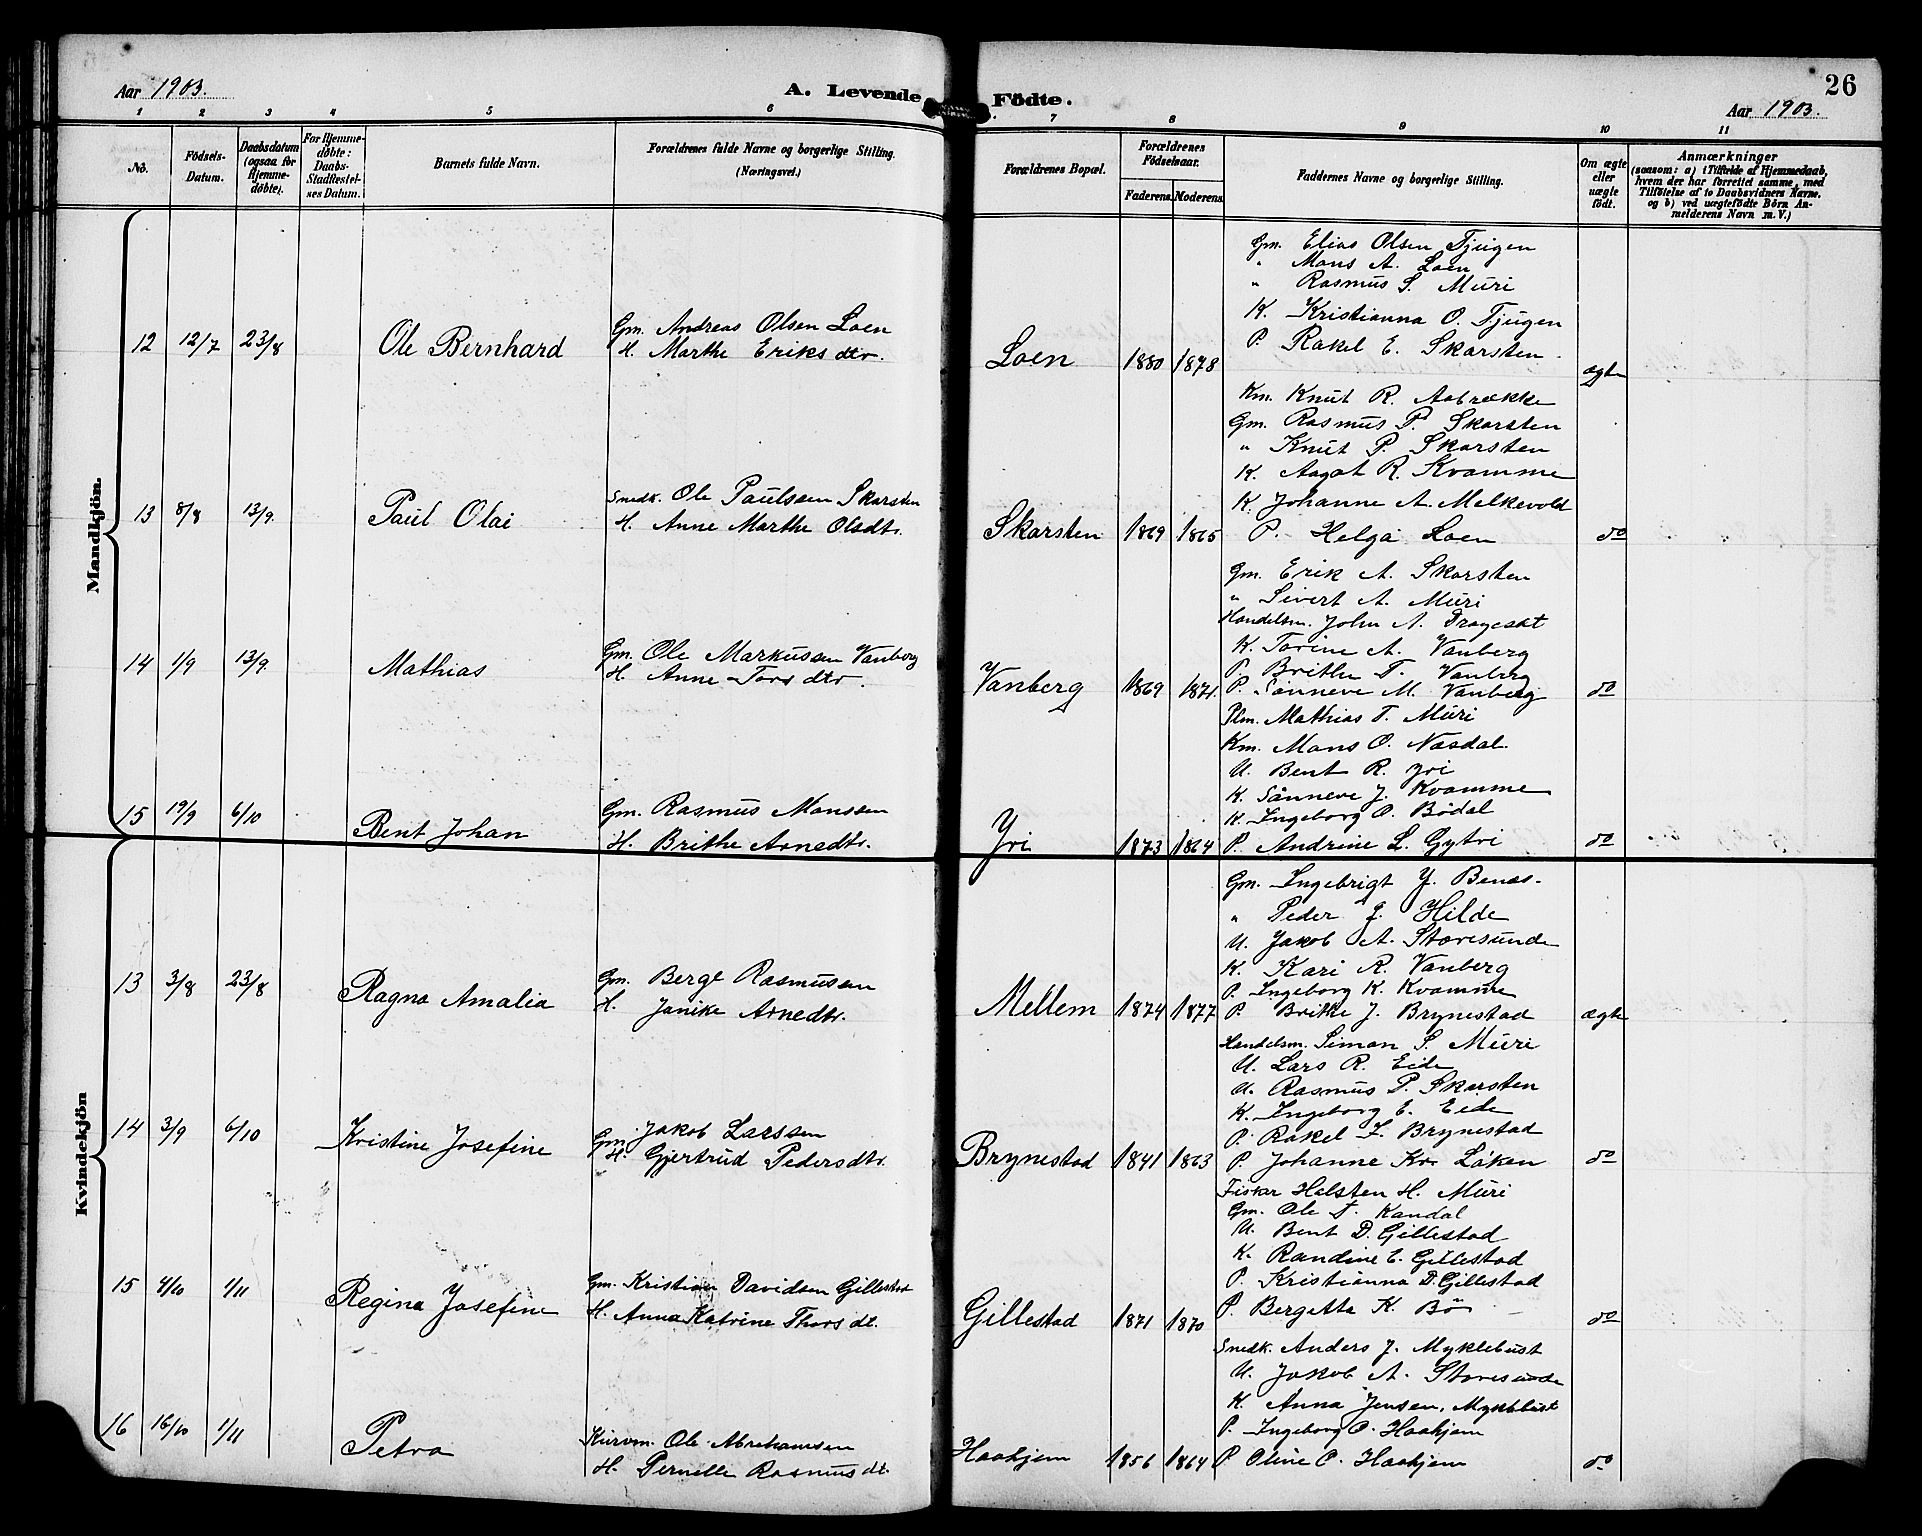 Aar 1903.
A. Levende Födte.
26
Aar 1903.
1 2 3 4 5 6 7 8 9 10 11
No.
Födsels-Datum.
Daabsdatum (ogsaa for Hjemme-döbte).
For Hjemme-döbte: Daabs-Stadfæstel-nes Datum.
Barnets fulde Navn.
Forældrenes fulde Navne og borgerlige Stilling. (Næringsvei.)
Forældrenes Bopæl.
Forældrenes Födselsaar.
Faderens. Moderens.
Faddernes Navne og borgerlige Stilling.
Om ægte eller uægte födt.
Anmærkninger
(saasom: a) i Tilfælde af Hjemmedaab,
hvem der har forrettet samme, med
Tilföielse af to Daabsvidners Navne.
og b) ved uægtefödte Börn An-
melderens Navn m. V.)
Mandkjön.
12 12/7 23/8 Ole Bernhard
Gm. Andreas Olsen Loen
H. Marthe Eriksdtr.
Loen 1880 1878
Gm. Elias Olsen Tjugen
" Mons A. Loen
" Rasmus S. Muri
K. Kristianna O. Tjugen
P. Rakel E. Skarsten
ægte
13 8/8 13/9. Paul Olai
Snedk. Ole Paulsen Skarsten
H. Anne Marthe Olsdtr.
Skarsten 1869 1865
Km. Knut R. Aabrække
Gm. Rasmus P. Skarsten
" Knut P. Skarsten
K. Aagot R. Kvamme
K. Johanne A. Melkevold
P. Helga Loen
do
14 1/9 13/9 Mathias
Gm. Ole Markussen Vanberg
H. Anne Torsdtr.
Vanberg 1869 1871.
Gm. Erik A. Skarsten
" Sivert A. Muri
Handelsm. John A.
K. Torine A. Vanberg
P. Brithe T. Vanberg
P. Sønneve M. Vanberg
do
15 19/9 6/10 Bent Johan
Gm. Rasmus Monssen
H. Brithe Arnedtr.
Yri 1873 1864
Plm. Mathias T. Muri
Km. Mons O. Nasdal.
U. Bent R. Yri
K. Sønneve J. Kvamme
K. Ingeborg O. Bødal
P. Andrine L. Gytri
do
Kvindekjön
13 3/8 23/8 Ragna Amalia
Gm. Berge Rasmussen
H. Janike Arnedtr.
Mellem 1874 1877
Gm. Ingebrigt Y. Benæs.
" Peder J. Hilde
U. Jakob A. Storesunde
K. Kari R. Vanberg
P. Ingeborg K. Kvamme
P. Brithe J. Brynestad
ægte
14 3/9 6/10 Kristine Josefine
Gm. Jakob Larssen
H. Gjertrud Pedersdtr.
Brynestad 1841 1863
Handelsm. Simon S. Muri
U. Lars R. Eide
U. Rasmus P. Skarsten
K. Ingeborg E. Eide
P. Rakel L. Brynestad
P. Johanne Kr. Løken
do
15 4/10 1/11 Regina Josefine
Gm. Kristian Davidsen Gillestad
H. Anna Katrine Thorsdt.
Gillestad 1871 1870
Fisker Halsten H. Muri
Gm. Ole T. Kandal
U. Bent D. Gillestad
K. Randine E. Gillestad
P. Kristianna D. Gillestad
P. Bergette K. Bø
do
16 16/10 1/11 Petra
Kurvm. Ole Abrahamsen
H. Pernelle Rasmusdt.
Haahjem 1856 1864
Snedk. Anders J. Myklebust
U. Jakob A. Storesunde
K. Anna Jensen, Myklebust
P. Ingeborg O. Haahjem
P. Oline O. Haahjem
do